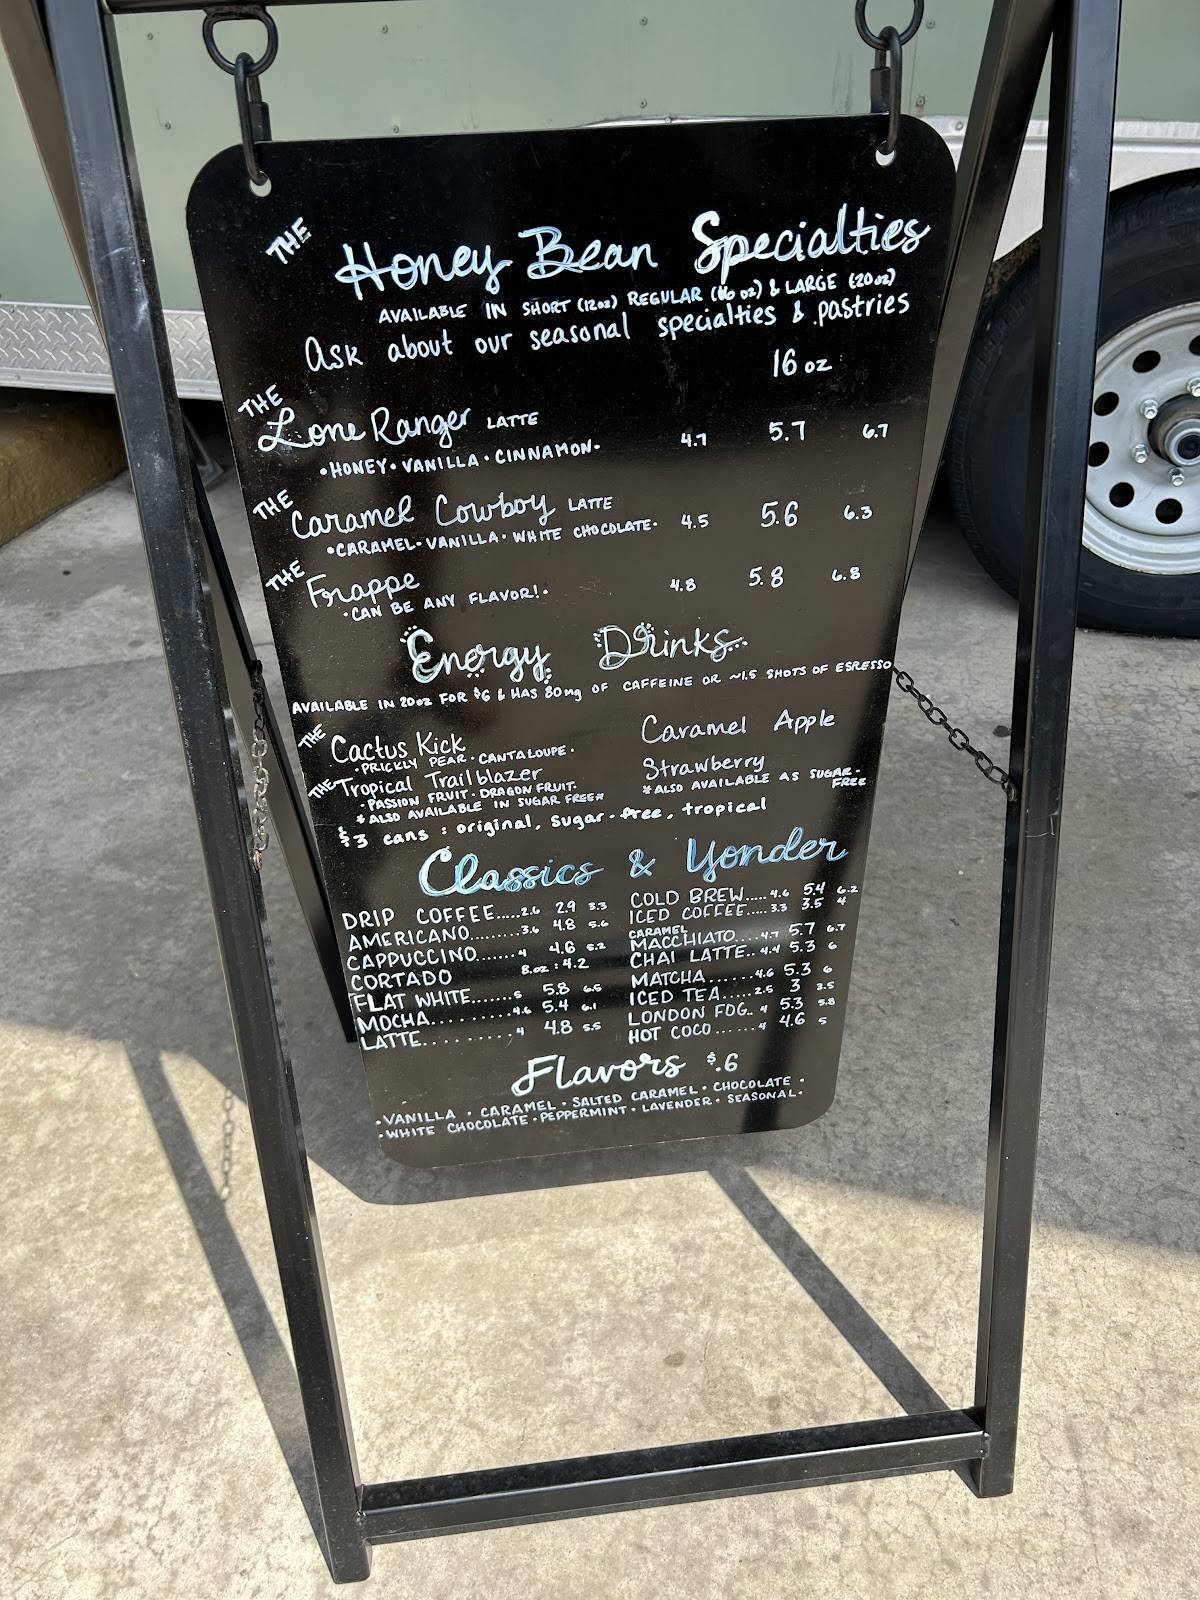 THE Honey Bean Specialties
AVAILABLE IN SHORT (12oz) REGULAR (16 oz) & LARGE (20oz)
Ask about our seasonal specialties & pastries
16 oz
THE Lone Ranger LATTE 4.7 5.7 6.7
•HONEY•VANILLA•CINNAMON•
THE Caramel Cowboy LATTE 4.5 5.6 6.3
•CARAMEL•VANILLA•WHITE CHOCOLATE•
THE Frappe 4.8 5.8 6.8
•CAN BE ANY FLAVOR!•
Energy Drinks
AVAILABLE IN 20oz FOR $6 & HAS 80mg OF CAFFEINE OR ~1.5 SHOTS OF ESRESSO
THE Cactus Kick
•PRICKLY PEAR•CANTALOUPE•
THE Tropical Trailblazer
•PASSION FRUIT•DRAGON FRUIT•
*ALSO AVAILABLE IN SUGAR FREE*
Caramel Apple
Strawberry
*ALSO AVAILABLE AS SUGAR-
FREE
$3 cans: original, sugar-free, tropical
Classics & Yonder
DRIP COFFEE.....2.6 2.9 3.3
AMERICANO.........3.6 4.8 5.6
CAPPUCCINO.......4 4.6 5.2
CORTADO 8oz: 4.2
FLAT WHITE.......5 5.8 6.5
MOCHA..........4.6 5.4 6.1
LATTE.........4 4.8 5.5
COLD BREW.....4.6 5.4 6.2
ICED COFFEE.....3.3 3.5 4
CARAMEL
MACCHIATO....4.7 5.7 6.7
CHAI LATTE..4.4 5.3 6
MATCHA......4.6 5.3 6
ICED TEA.....2.5 3 3.5
LONDON FOG.. 4 5.3 5.8
HOT COCO......4 4.6 5
Flavors $.6
•VANILLA•CARAMEL•SALTED CARAMEL•CHOCOLATE•
•WHITE CHOCOLATE•PEPPERMINT•LAVENDER•SEASONAL•